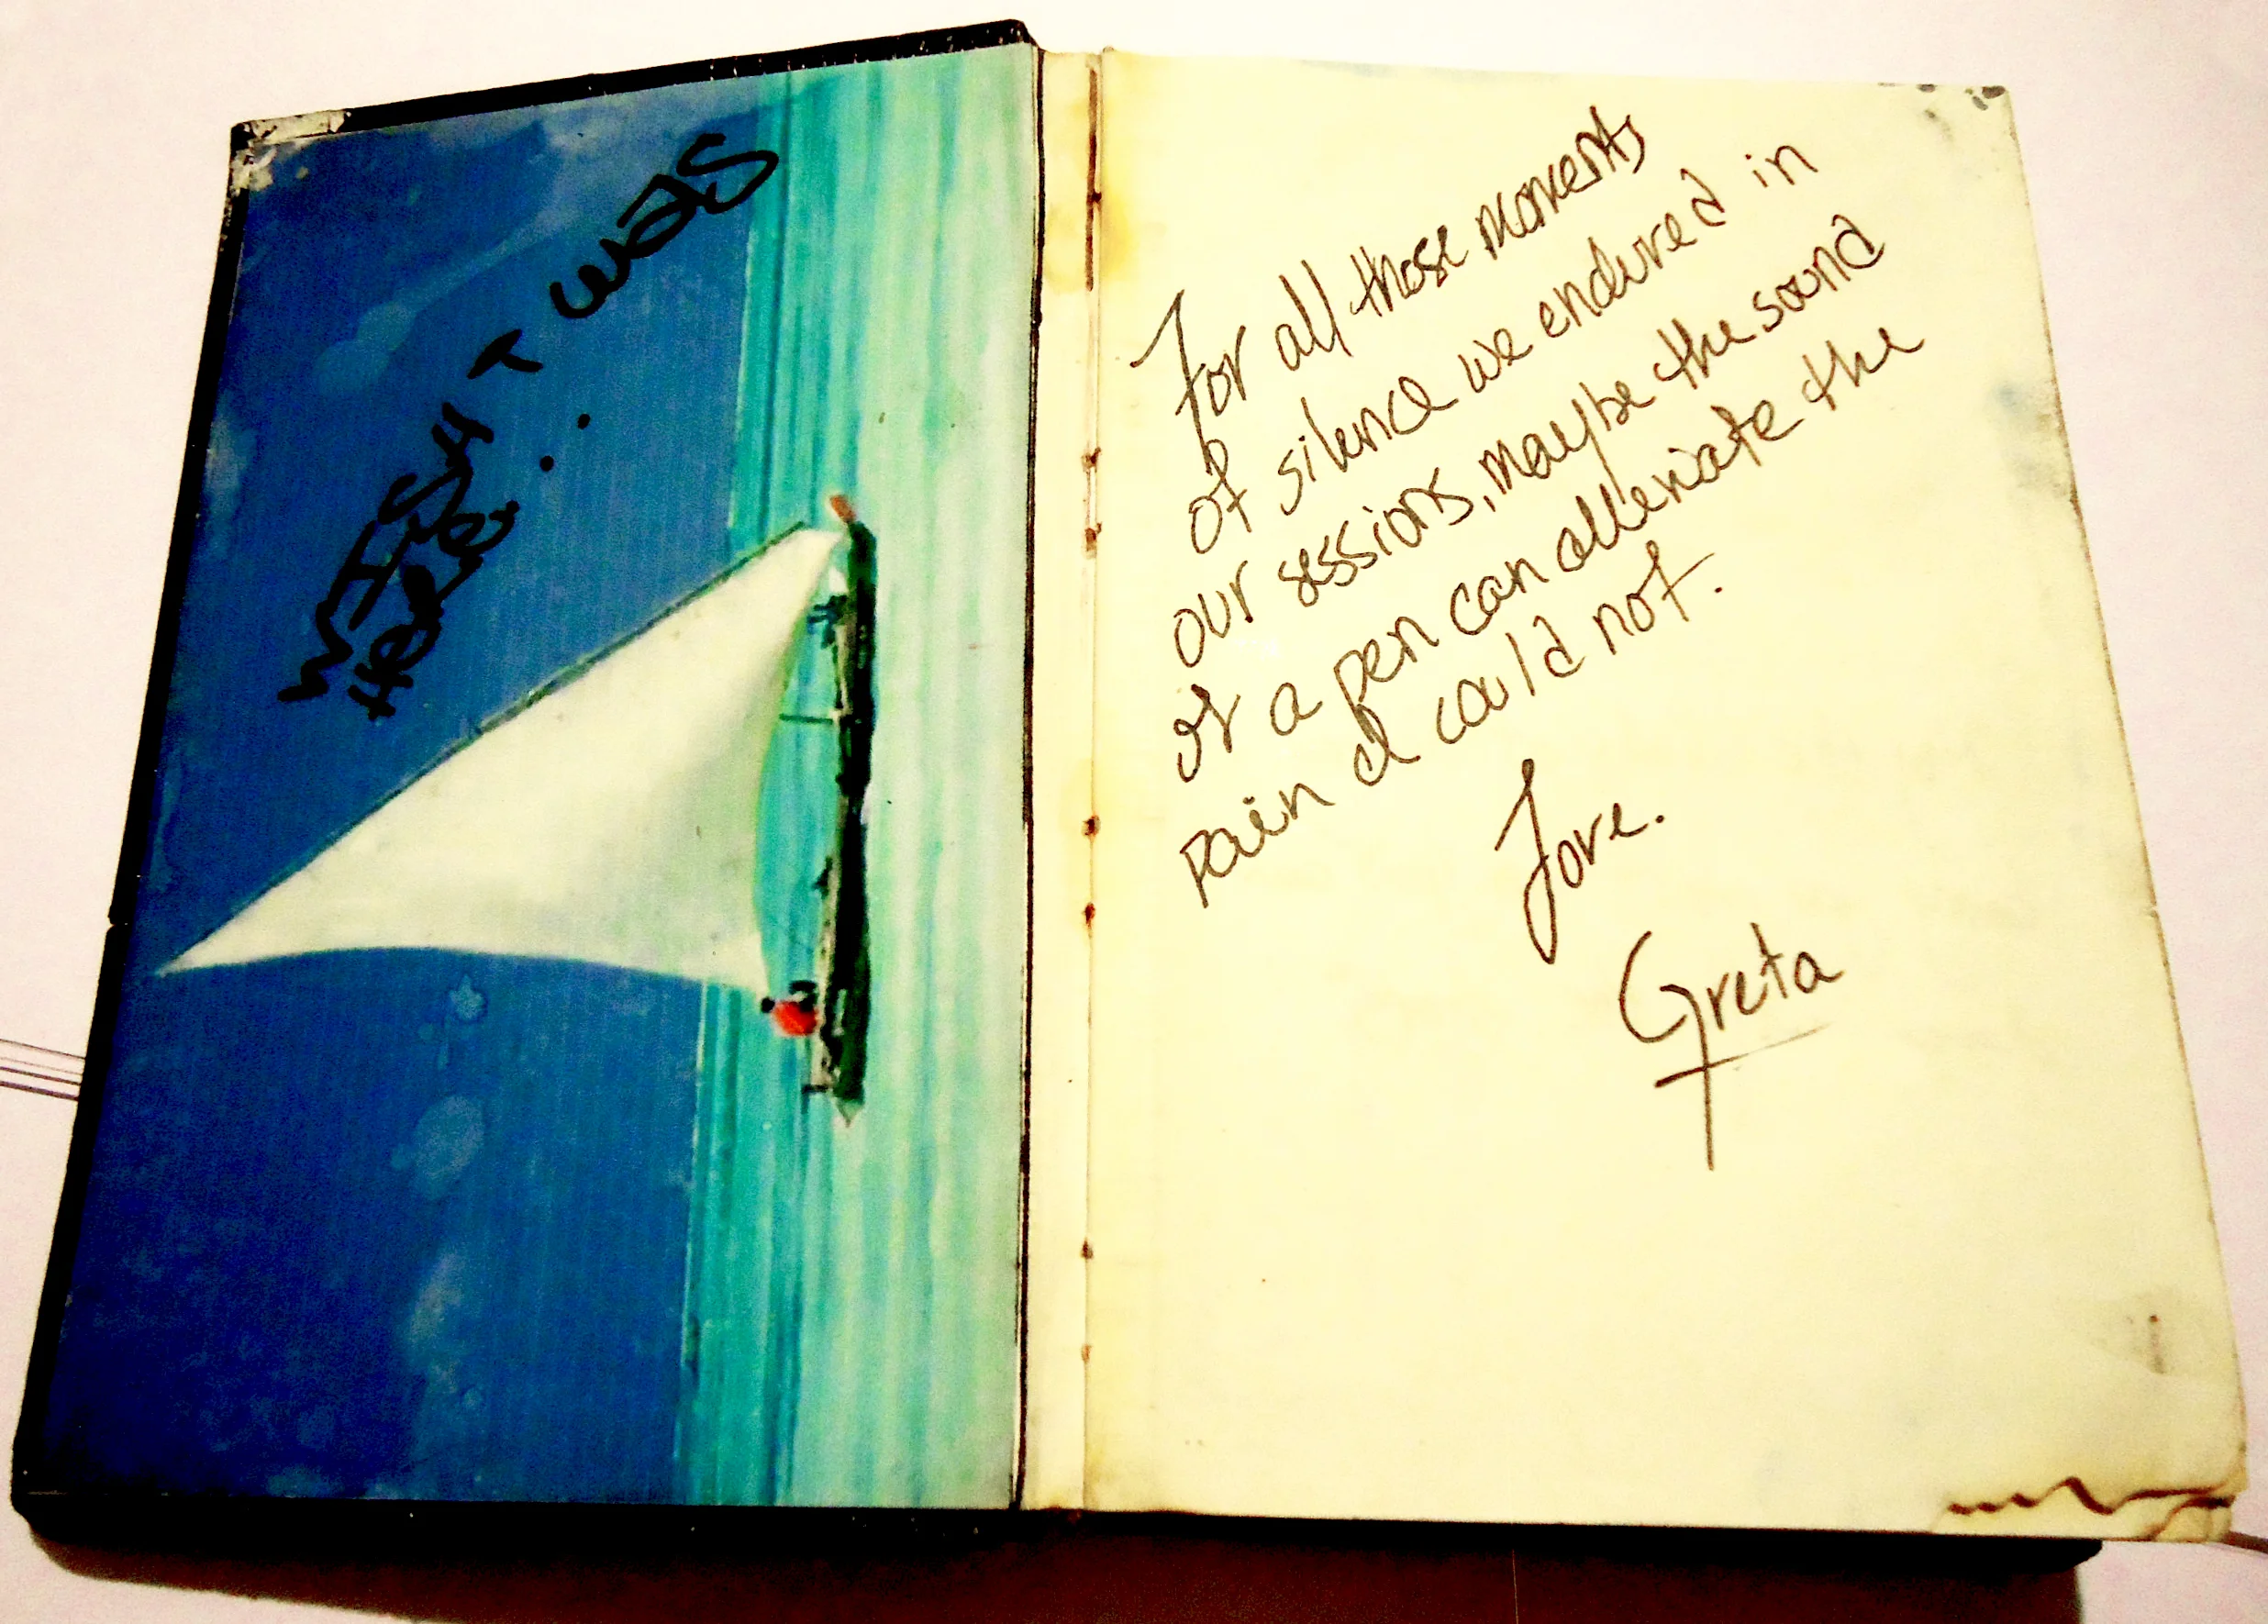 WISH I WAS
HERE..
For all those moments
of silence we endured in
our sessions, maybe the sound
of a pen can alleviate the
pain I could not.
Love.
Greta